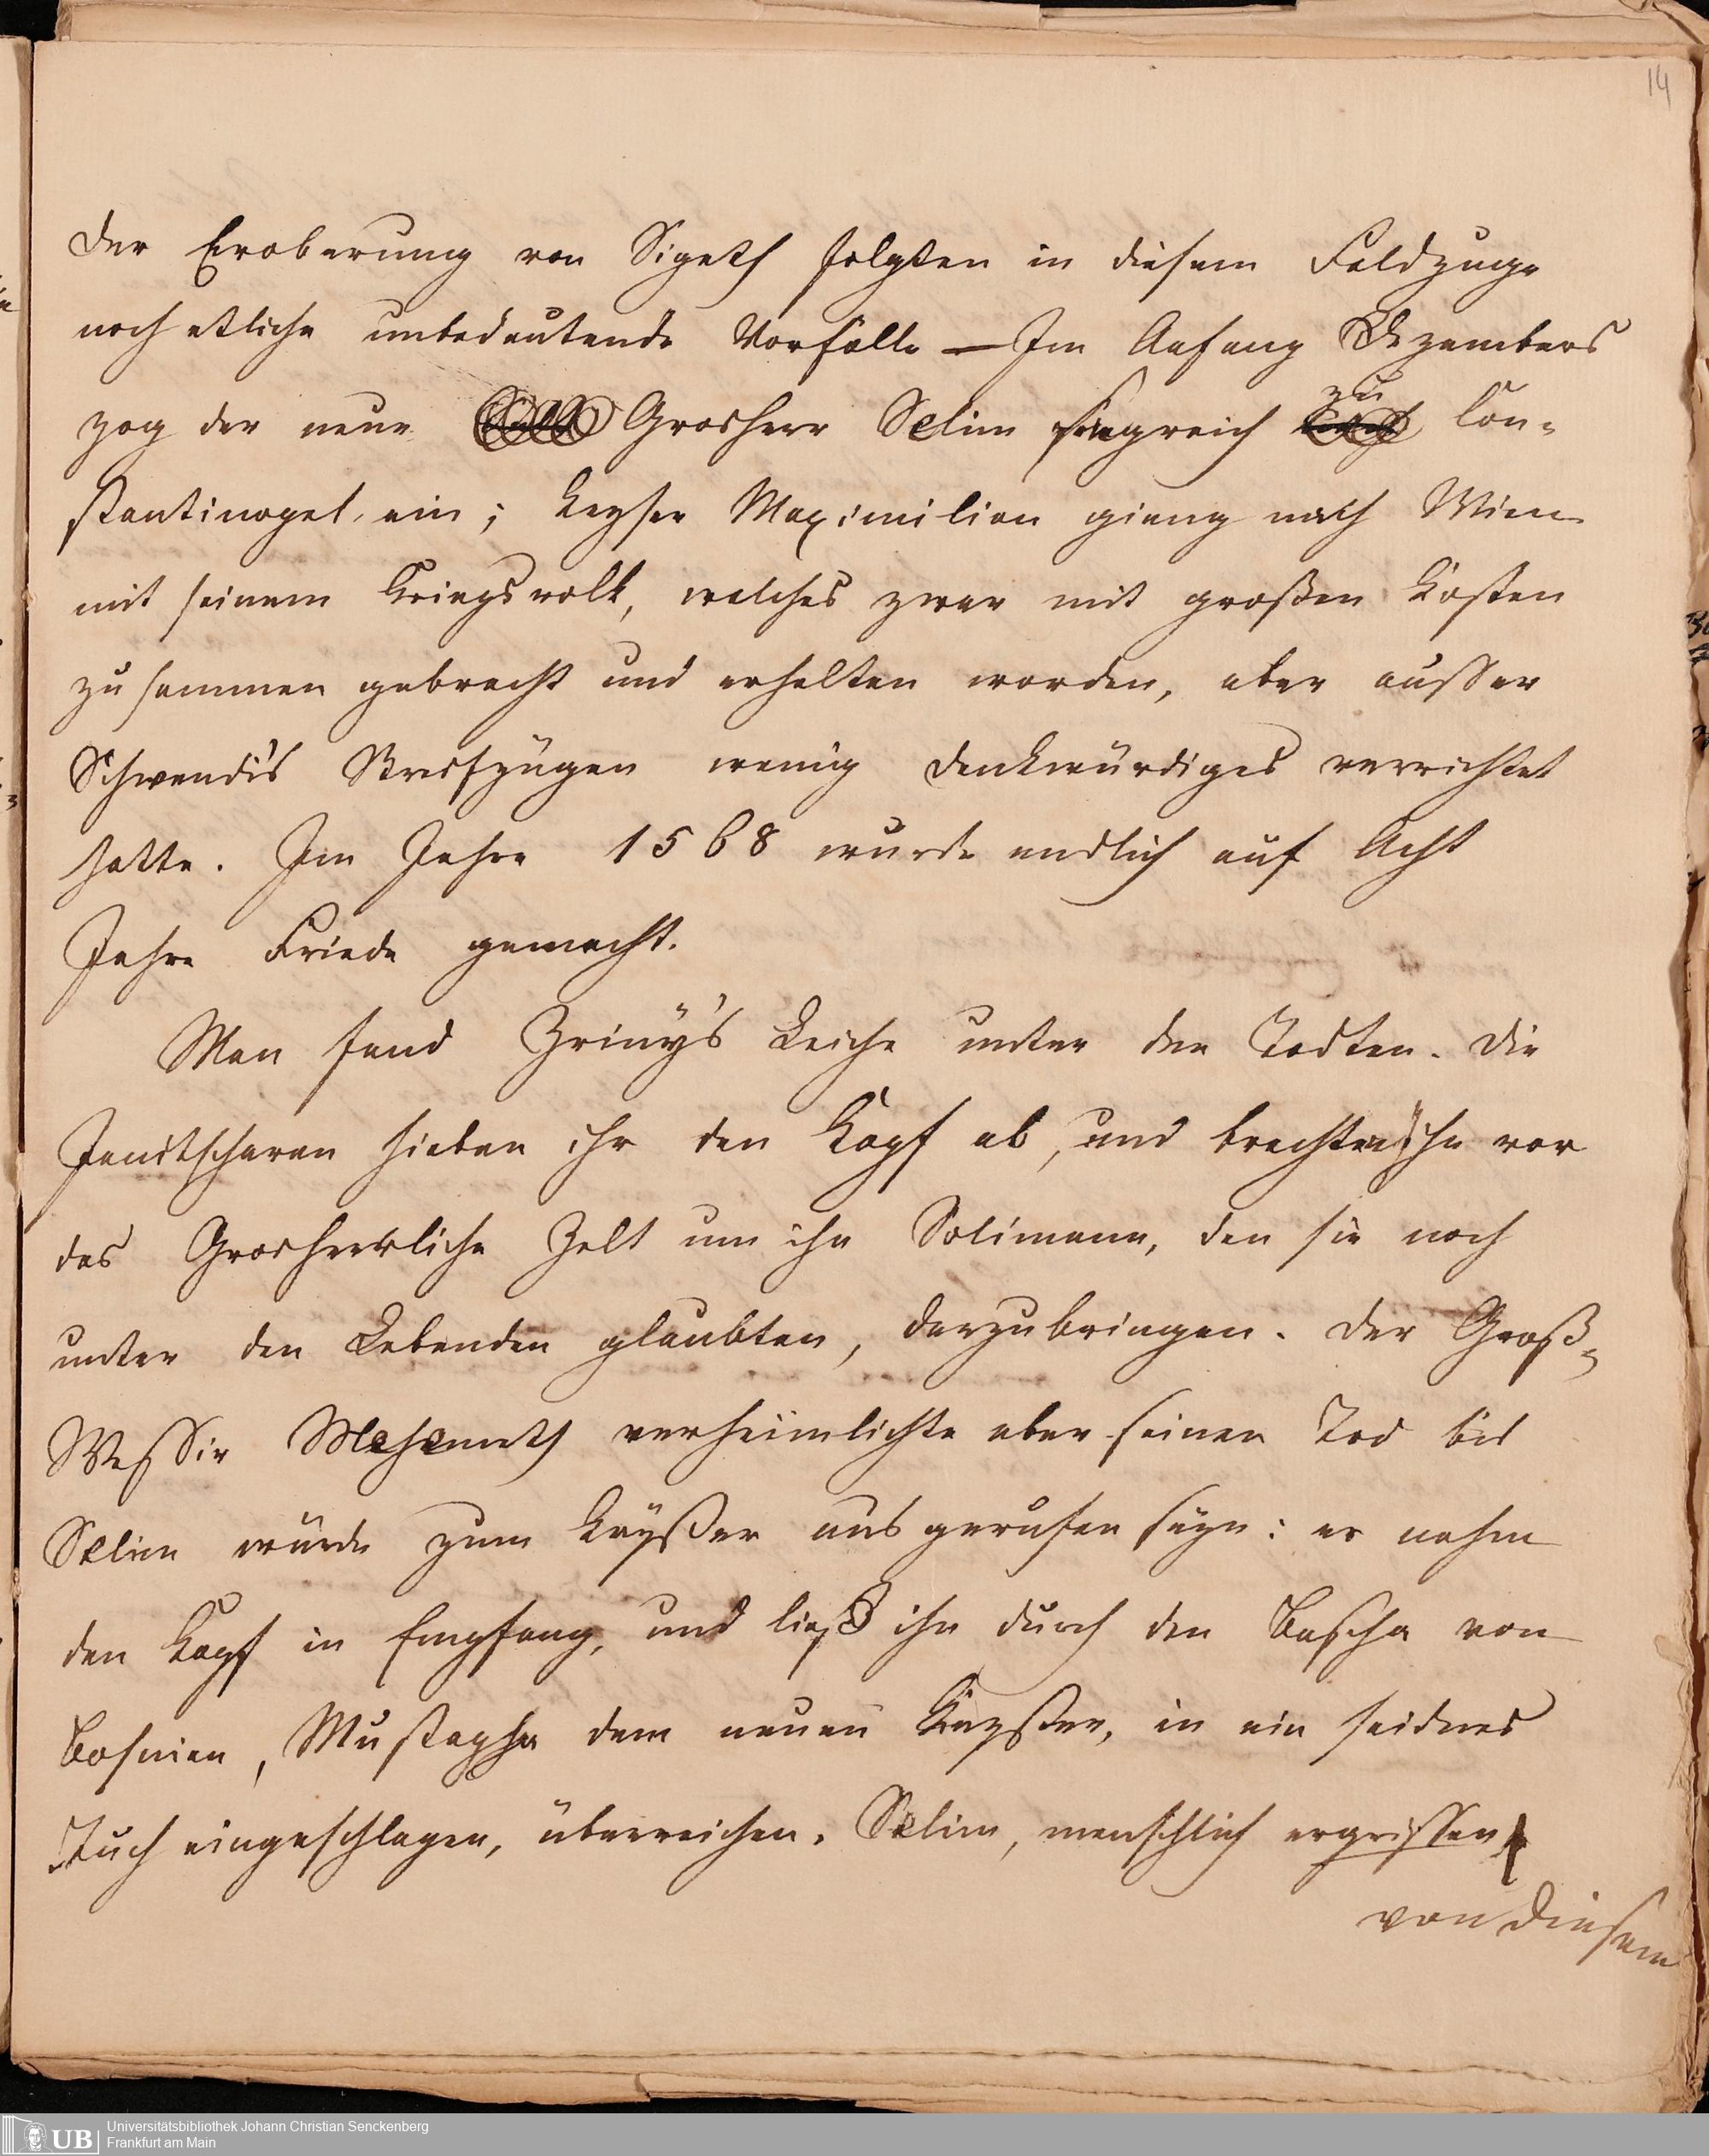 14
der Eroberung von Sigeth folgten in diesem Feldzuge
noch etliche unbedeutende Vorfälle – Im Anfang Dezembers
zog der neue Grosherr Selim siegreich zu Con-
stantinopel, ein; Keyser Maximilian gieng nach Wien
mit seinem Kriegsvolk, welches zwar mit großen Kosten
zusammen gebracht und erhalten worden, aber ausser
Schwendi's Streifzügen wenig denkwürdiges verrichtet
hatte. Im Jahre 1568 wurde endlich auf Acht
Jahre Friede gemacht.
Man fand Zriny's Leiche unter den Todten. Die
Janitscharen hieben ihr den Kopf ab, und brachten ihn vor
das Grosherrliche Zelt um ihn Solimann, den sie noch
unter den Lebenden glaubten, darzubringen. Der Groß-
Wessir Mehemeth verheimlichte aber seinen Tod bis
Selim würde zum Kayßer ausgerufen seyn: er nahm
den Kopf in Empfang, und ließ ihn durch den Bascha von
Bosnien, Mustapha dem neuen Kayßer, in ein seidnes
Tuch eingeschlagen, überreichen. Selim, menschlich ergriffen
von diesem
UB
Universitätsbibliothek Johann Christian Senckenberg
Frankfurt am Main